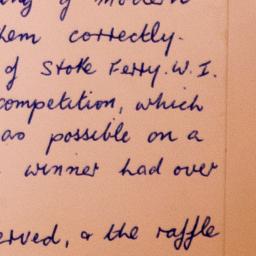 of modern
hem correctly.
of Stoke Ferry. W. I.
competition, which
as possible on a
winner had over
erved, & the raffle